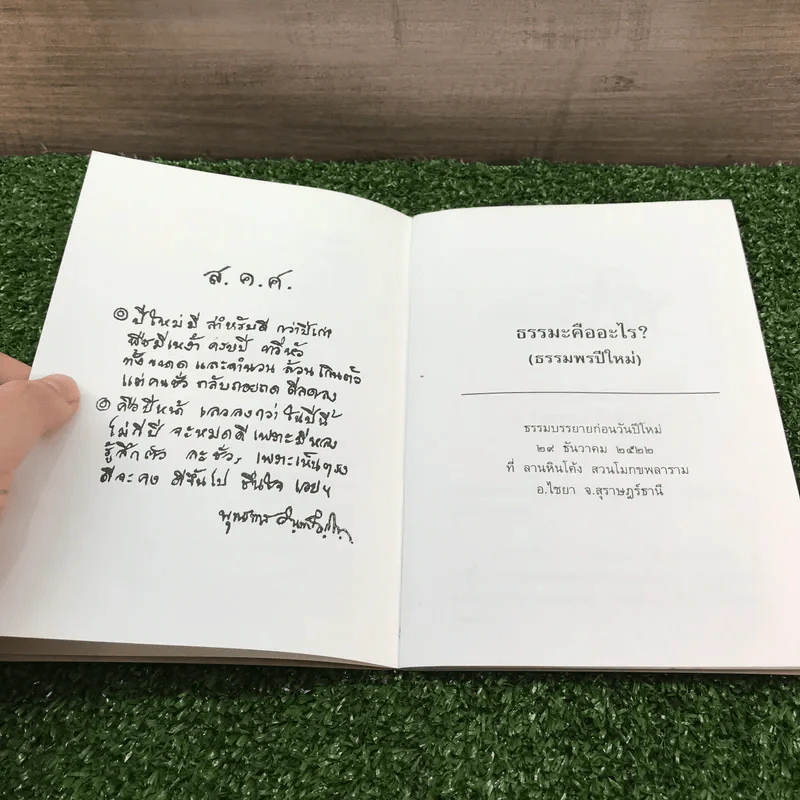 ส.ค.ศ.
ปีใหม่มี สำหรับดี กว่าปีเก่า
พืชมีเหง้า ครบปี ทวีหัว
ทั้งขนาด และจำนวน ล้วน เกินตัว
แต่คนชั่ว กลับถอยถด ดีลดลง
คือปีหน้า เลวลงกว่า ในปีนี้
ไม่กี่ปี จะหมดดี เพราะมีหลง
รู้สึกตัว ละชั่ว, เพราะเห็นตรง
ดีจะคง ดีขึ้นไป ชื่นใจ เอยฯ
พุทธทาส อินทปัญโญ
ธรรมะคืออะไร?
(ธรรมพรปีใหม่)
ธรรมบรรยายก่อนวันปีใหม่
๒๙ ธันวาคม ๒๕๒๒
ที่ ลานหินโค้ง สวนโมกขพลาราม
อ.ไชยา จ.สุราษฎร์ธานี